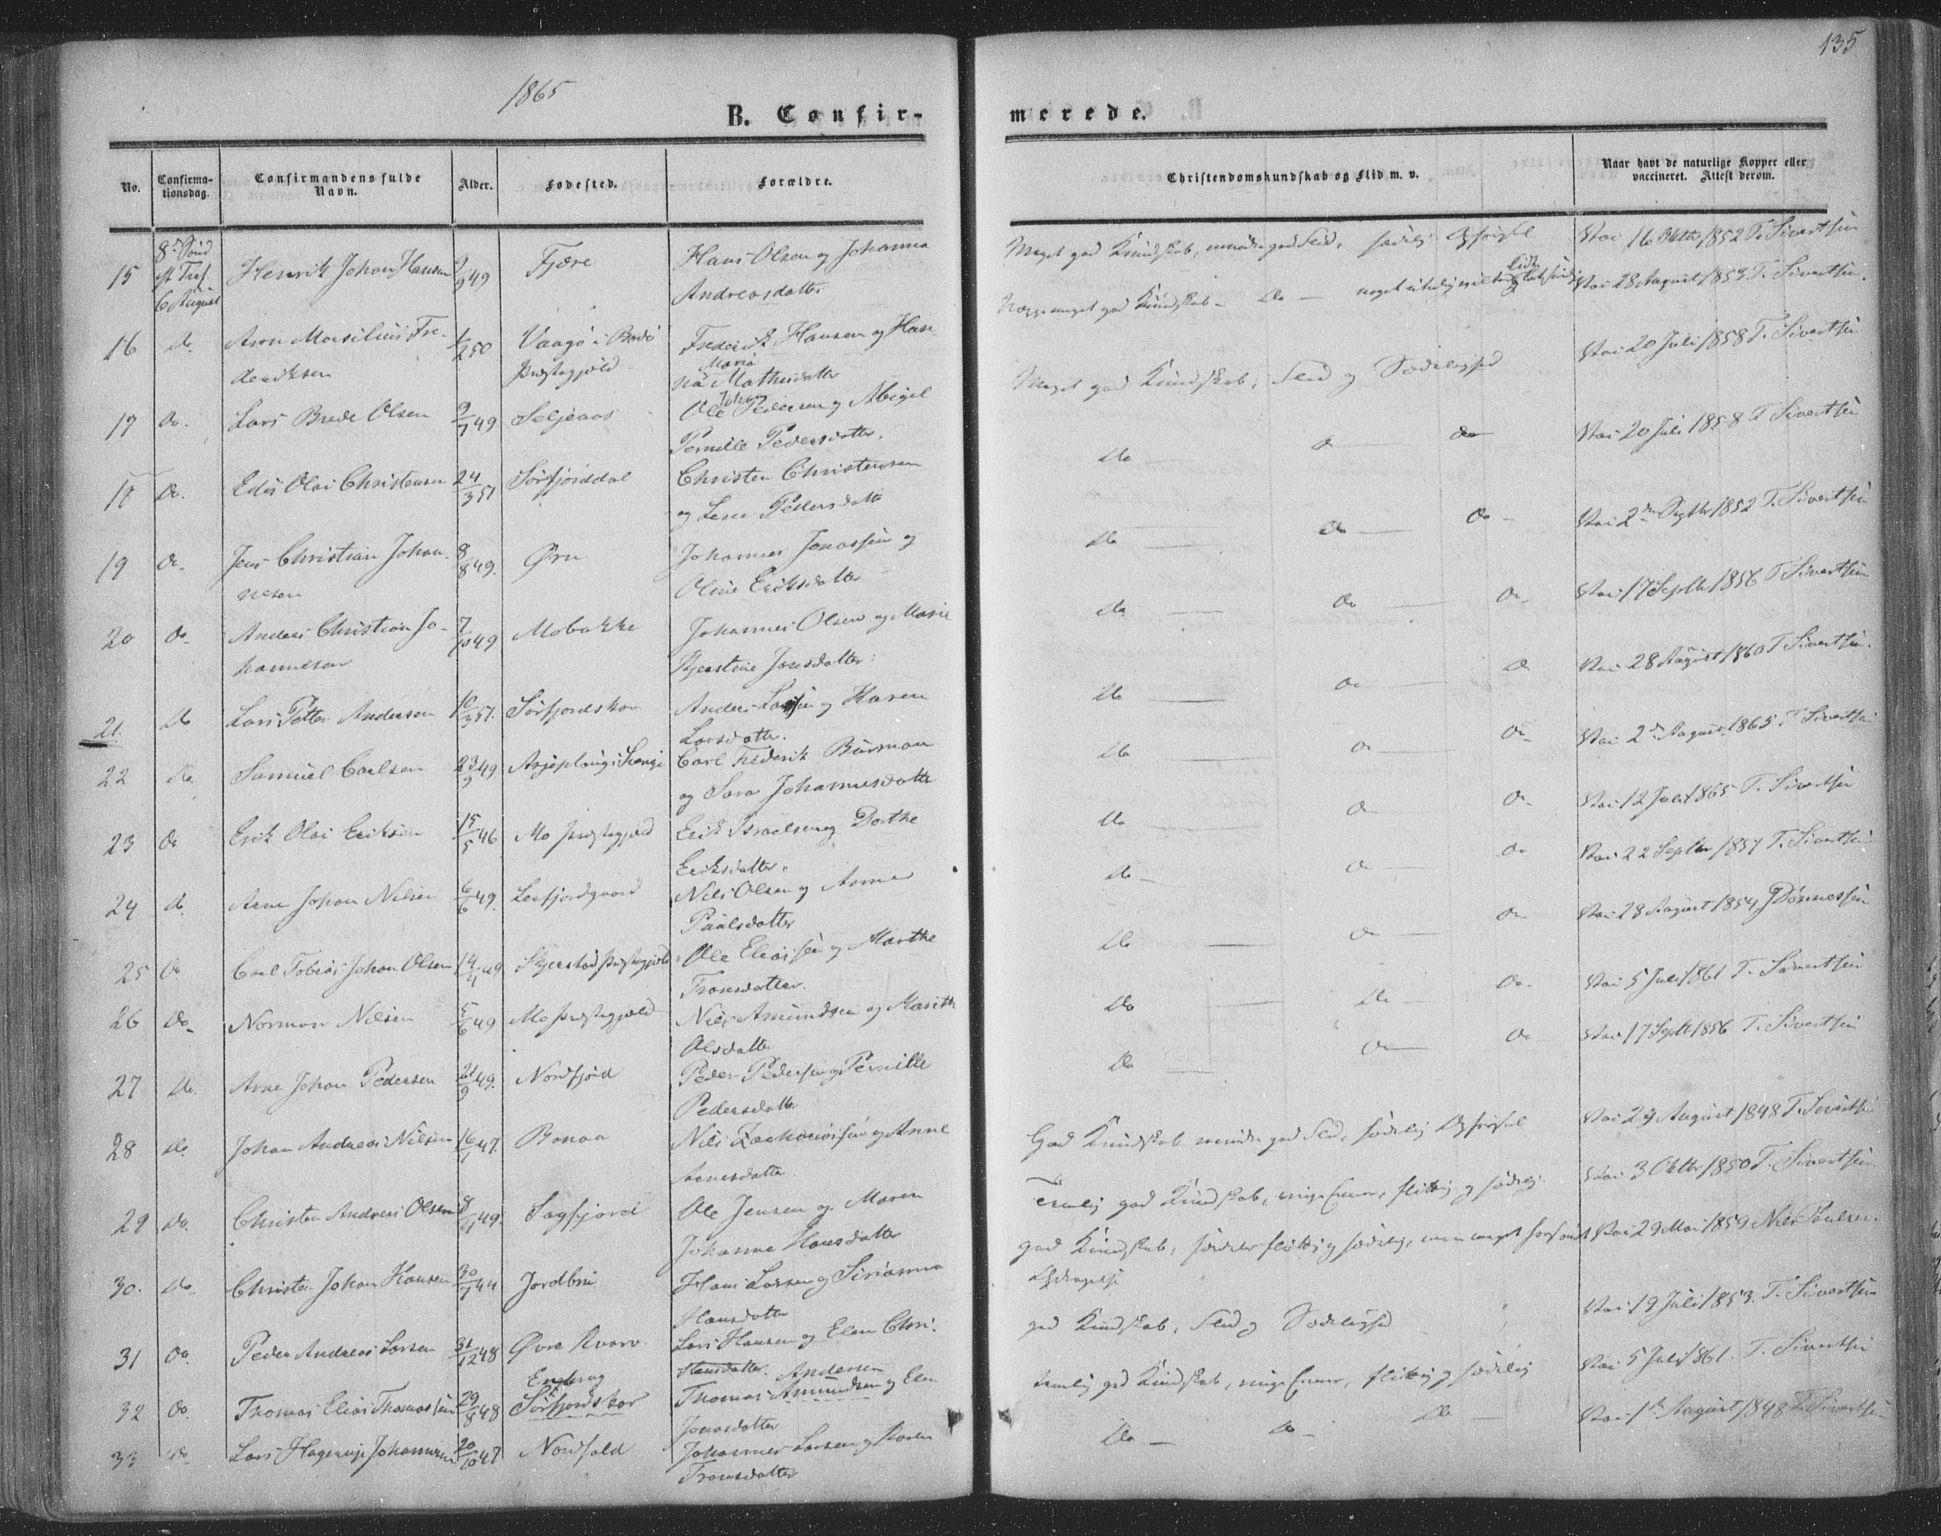 135
1865
B. Confir-
merede.
No.
Confirma-
tionsdag.
Confirmandens fulde
Navn.
Alder.
Fødested.
Forældre.
Christendomskundskab og Flid m. v.
Naar havt de naturlige Kopper eller
vaccineret. Attest derom.
15 6 August Henrik Johan Hansen 49 Fjære Hans Olsen og Johanna
Andreasdatter
Meget god Kundskab, mindre god Flid, sædelig Opførsel
Vac. 16 Oktbr 1852 T. Sivertsen
16 do. Aron Marsilius Fre-
deriksen
2/50 Vaagø i Bodø
Præstegjeld
Frederik Hansen og Han-
na Maria Mathisdatter
meget god Kundskab - Do -
Vac. 28 August 1853 T. Sivertsen.
17 Do. Lars Brede Olsen 9/7 49 Seljeaas Ole Johan Pedersen og Abigel
Pernille Pedersdatter.
Meget god Kundskab, Flid og Sædelighed
Vac. 20 Juli 1858 T. Sivertsen
18 Do. Edis Olai Christensen 24/3 51 Sørfjorddal Christen Christensen
og Lene Pedersdatter
Do Do Do
Vac. 20 Juli 1858 T. Sivertsen
19 Do. Jens Christian Johan-
nesen
8/8 49. Ørn Johannes Jonassen og
Oline Eriksdatter
Do Do Do
Vac. 2den Septbr 1852 T. Sivertsen
20 Do. Anders Christian Jo-
hannesen
7/10 49 Mobakke Johannes Olsen og Marie
Kjerstine Jonsdatter
Do Do Do
Vac. 17 Septbr 1856 T. Sivertsen
21. do Lars Petter Andersen 10/3 51. Sørfjordskar Anders Larsen og Karen
Larsdatter.
Do Do Do
Vac. 28 August 1860 T. Sivertsen.
22 Do Samuel Carlsen 23/9 49 Arjeploug i Sverrige Carl Frederik Burman
og Sara Johannesdatter
Do Do Do
Vac. 2den August 1865 T. Sivertsen
23 Do Erik Olai Eriksen 15/5 46 Mo Præstegjeld Erik Israelsen og Dorthe
Eriksdatter.
Do Do Do
Vac. 12 Juli 1865 T. Sivertsen
24 do. Arne Johan Nilsen 6/6 49. Leirfjordgaard Nils Olsen og Anna
Paulsdatter
Do Do Do
Vac. 22 Septbr 1857 T. Sivertsen
25 Do Carl Tobias Johan Olsen 14/4 49 Skjerstad Præstegjeld Ole Eliassen og Marthe
Tronsdatter.
Do Do Do
Vac. 28 August 1854 J Dønnessen
26 Do. Norman Nilsen 5/6 49 Mo Præstegjeld Nils Amundsen og Marith
Olsdatter
Do Do Do
Vac. 5 Juli 1861 T. Sivertsen
27 Do. Arne Johan Pedersen 49. Nordfjord Peder Pedersen og Pernille
Pedersdatter
Do Do Do
Vac. 17 Septbr 1856 T. Sivertsen
28 Do. Johan Andreas Nilsen 16/ 47. Bonaa Nils Zachariassen og Anne
Arnesdatter
God Kundskab mindre god Flid, sædelig Opførsel
Vac. 29 August 1848 T. Sivertsen
29 Do. Christen Andreas Olsen 8/ 49. Sagfjord Ole Jensen og Maren
Johanna Hansdatter
Temlig god Kundskab, ringe Evner, flittig og sædelig
Vac. 3 Oktbr 1850 T. Sivertsen.
30. Do. Christen Johan Hansen 30/7 44 Jordbru Hans Larsen og Sirianna
Hansdatter
god Kundskab, særdeles flittig og sædelig, men meget forsømt
Opdragelse
Vac. 29 Mai 1859 Nils Paulsen.
31 Do. Peder Andreas Larsen 31/12 48 Øvre Kvarv Lars Hansen og Elen Chri.
Hansdatter.
god Kundskab, Flid og Sædelighed
Vac. 19 Juli 1853. T. Sivertsen
32 Do. Thomas Elias Thomassen 29/8 48 Sørfjordskar Thomas Amundsen Andersen og Elen
Jonasdatter
temlig god Kundskab, ringe Evner, flittig og sædelig
Vac. 5 Juli 1861. T. Sivertsen
33 do Lars Hagerup Johannesen 20/10 47 Nordfold Johannes Larsen og Karen
Tronsdatter
Do Do Do
Vac. 1ste August 1848 T. Sivertsen